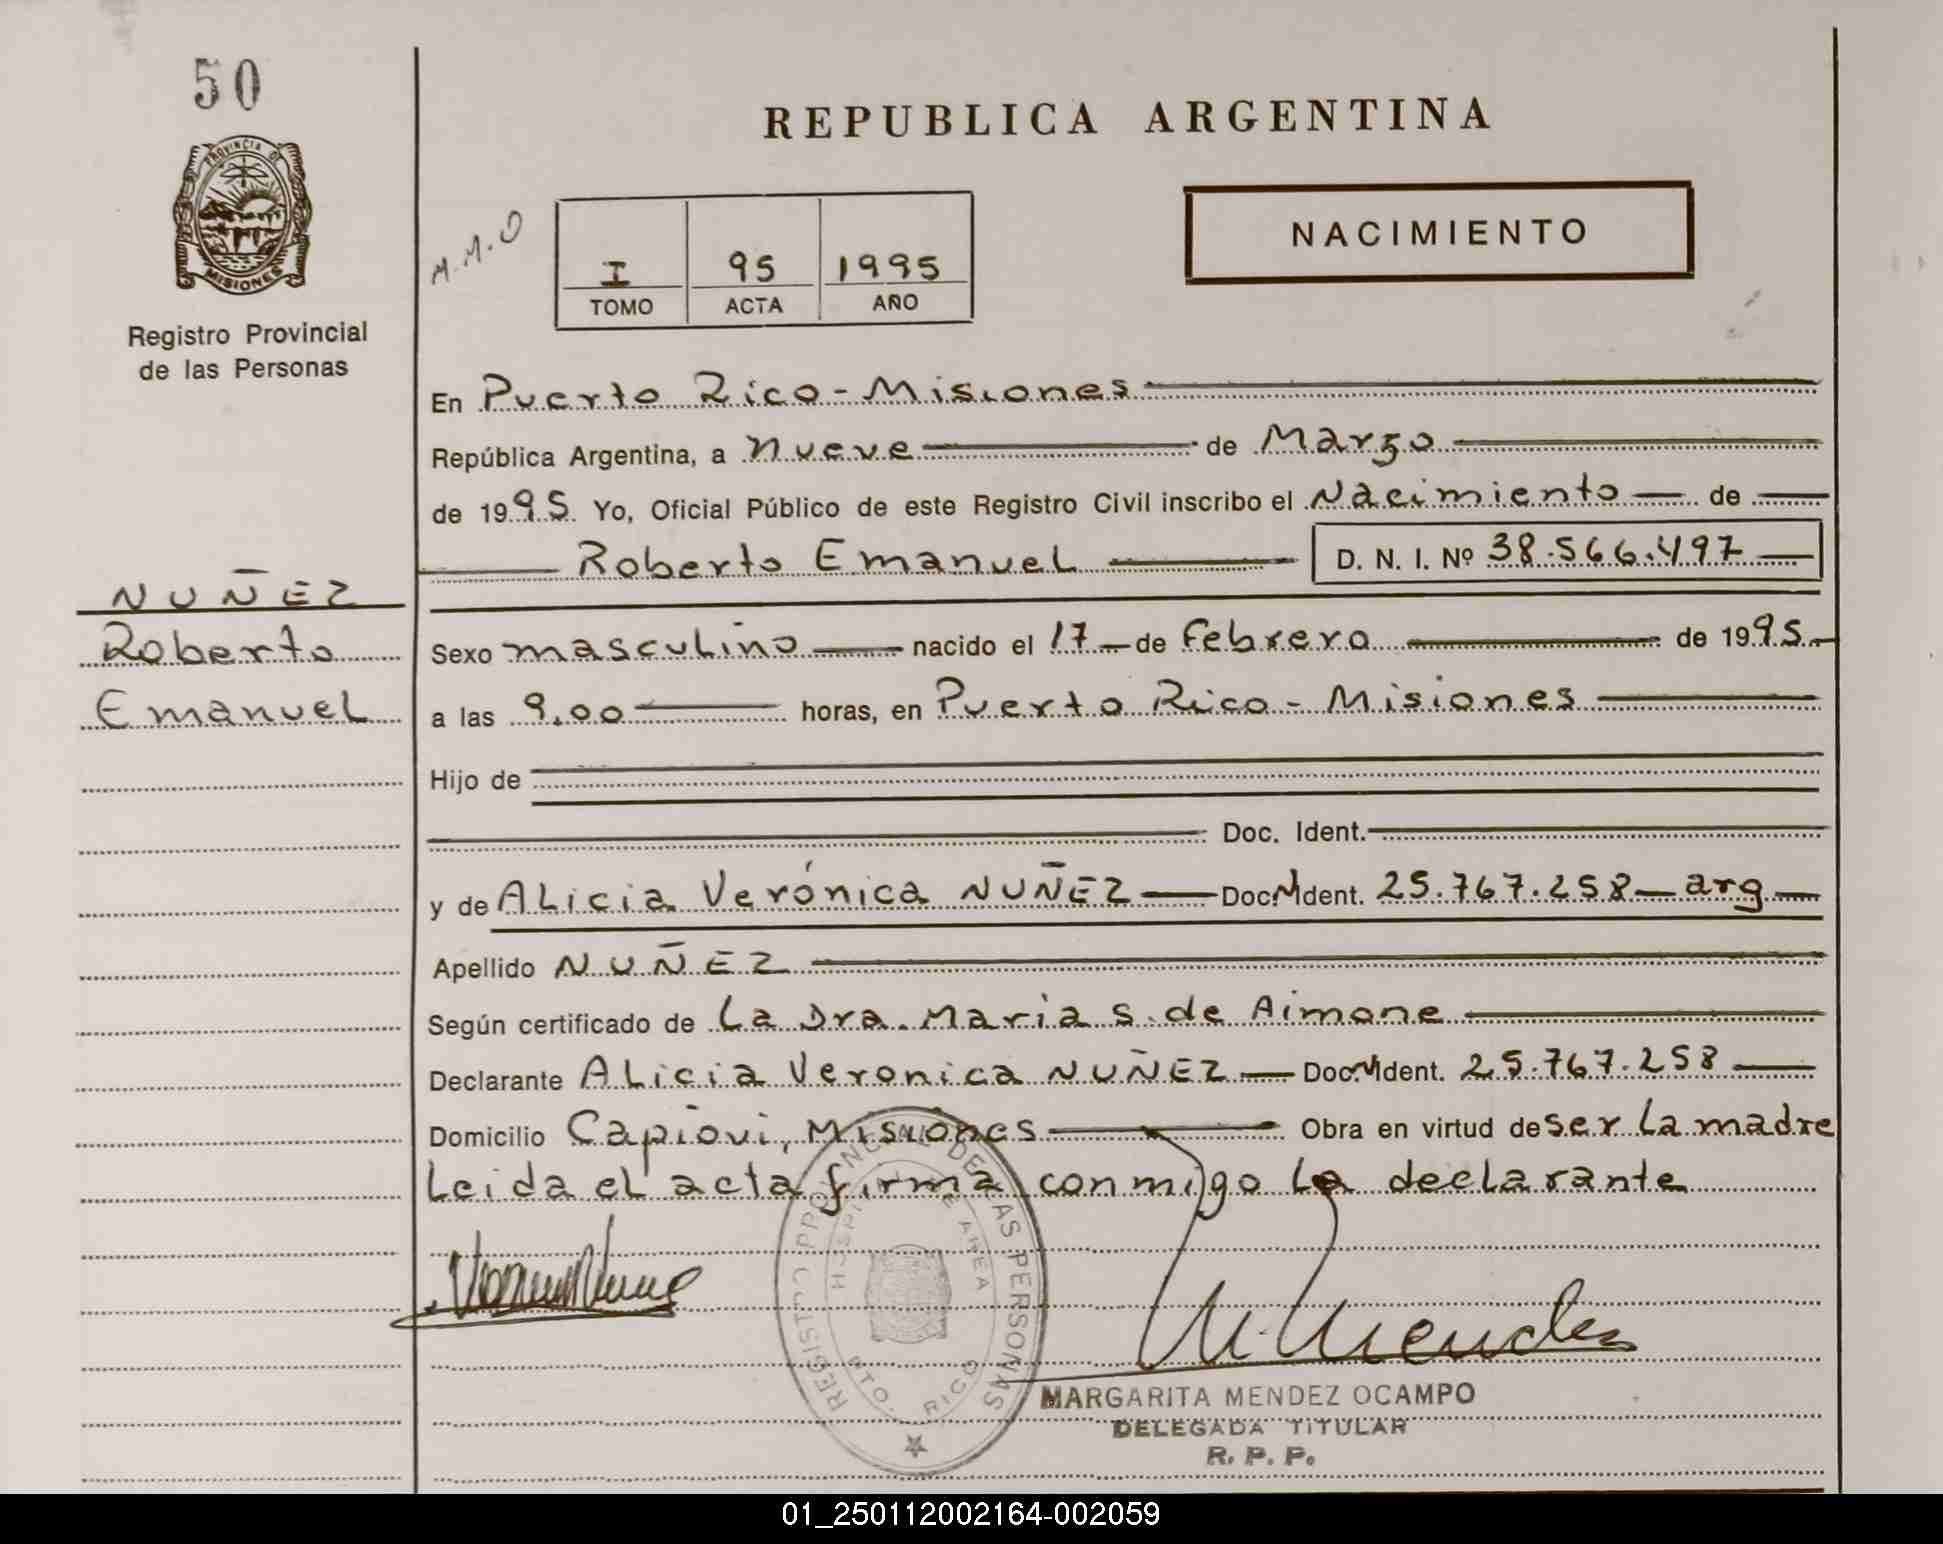 50
PROVINCIA DE
MISIONES
Registro Provincial
de las Personas
REPUBLICA ARGENTINA
M.M.O
I 95 1995
TOMO ACTA AÑO
NACIMIENTO
En Puerto Rico - Misiones
República Argentina, a Nueve de Marzo
de 1995. Yo, Oficial Público de este Registro Civil inscribo el Nacimiento de
Roberto Emanuel D. N. I. Nº 38.566.497
NUÑEZ
Roberto
Emanuel
Sexo masculino nacido el 17 de Febrero de 1995.
a las 9.00 horas, en Puerto Rico - Misiones
Hijo de
Doc. Ident.
y de Alicia Verónica NUÑEZ Doc. Ident. 25.767.258 arg
Apellido NUÑEZ
Según certificado de La Dra. Maria S. de Aimone
Declarante Alicia Veronica NUÑEZ Doc. Ident. 25.767.258
Domicilio Capiovi, Misiones Obra en virtud de ser La madre
Leida el acta firma conmigo La declarante
REGISTRO PROVINCIAL DE LAS PERSONAS
HOSPITAL DE AREA
PTO. RICO
M. Mendez
MARGARITA MENDEZ OCAMPO
DELEGADA TITULAR
R. P. P.
01_250112002164-002059